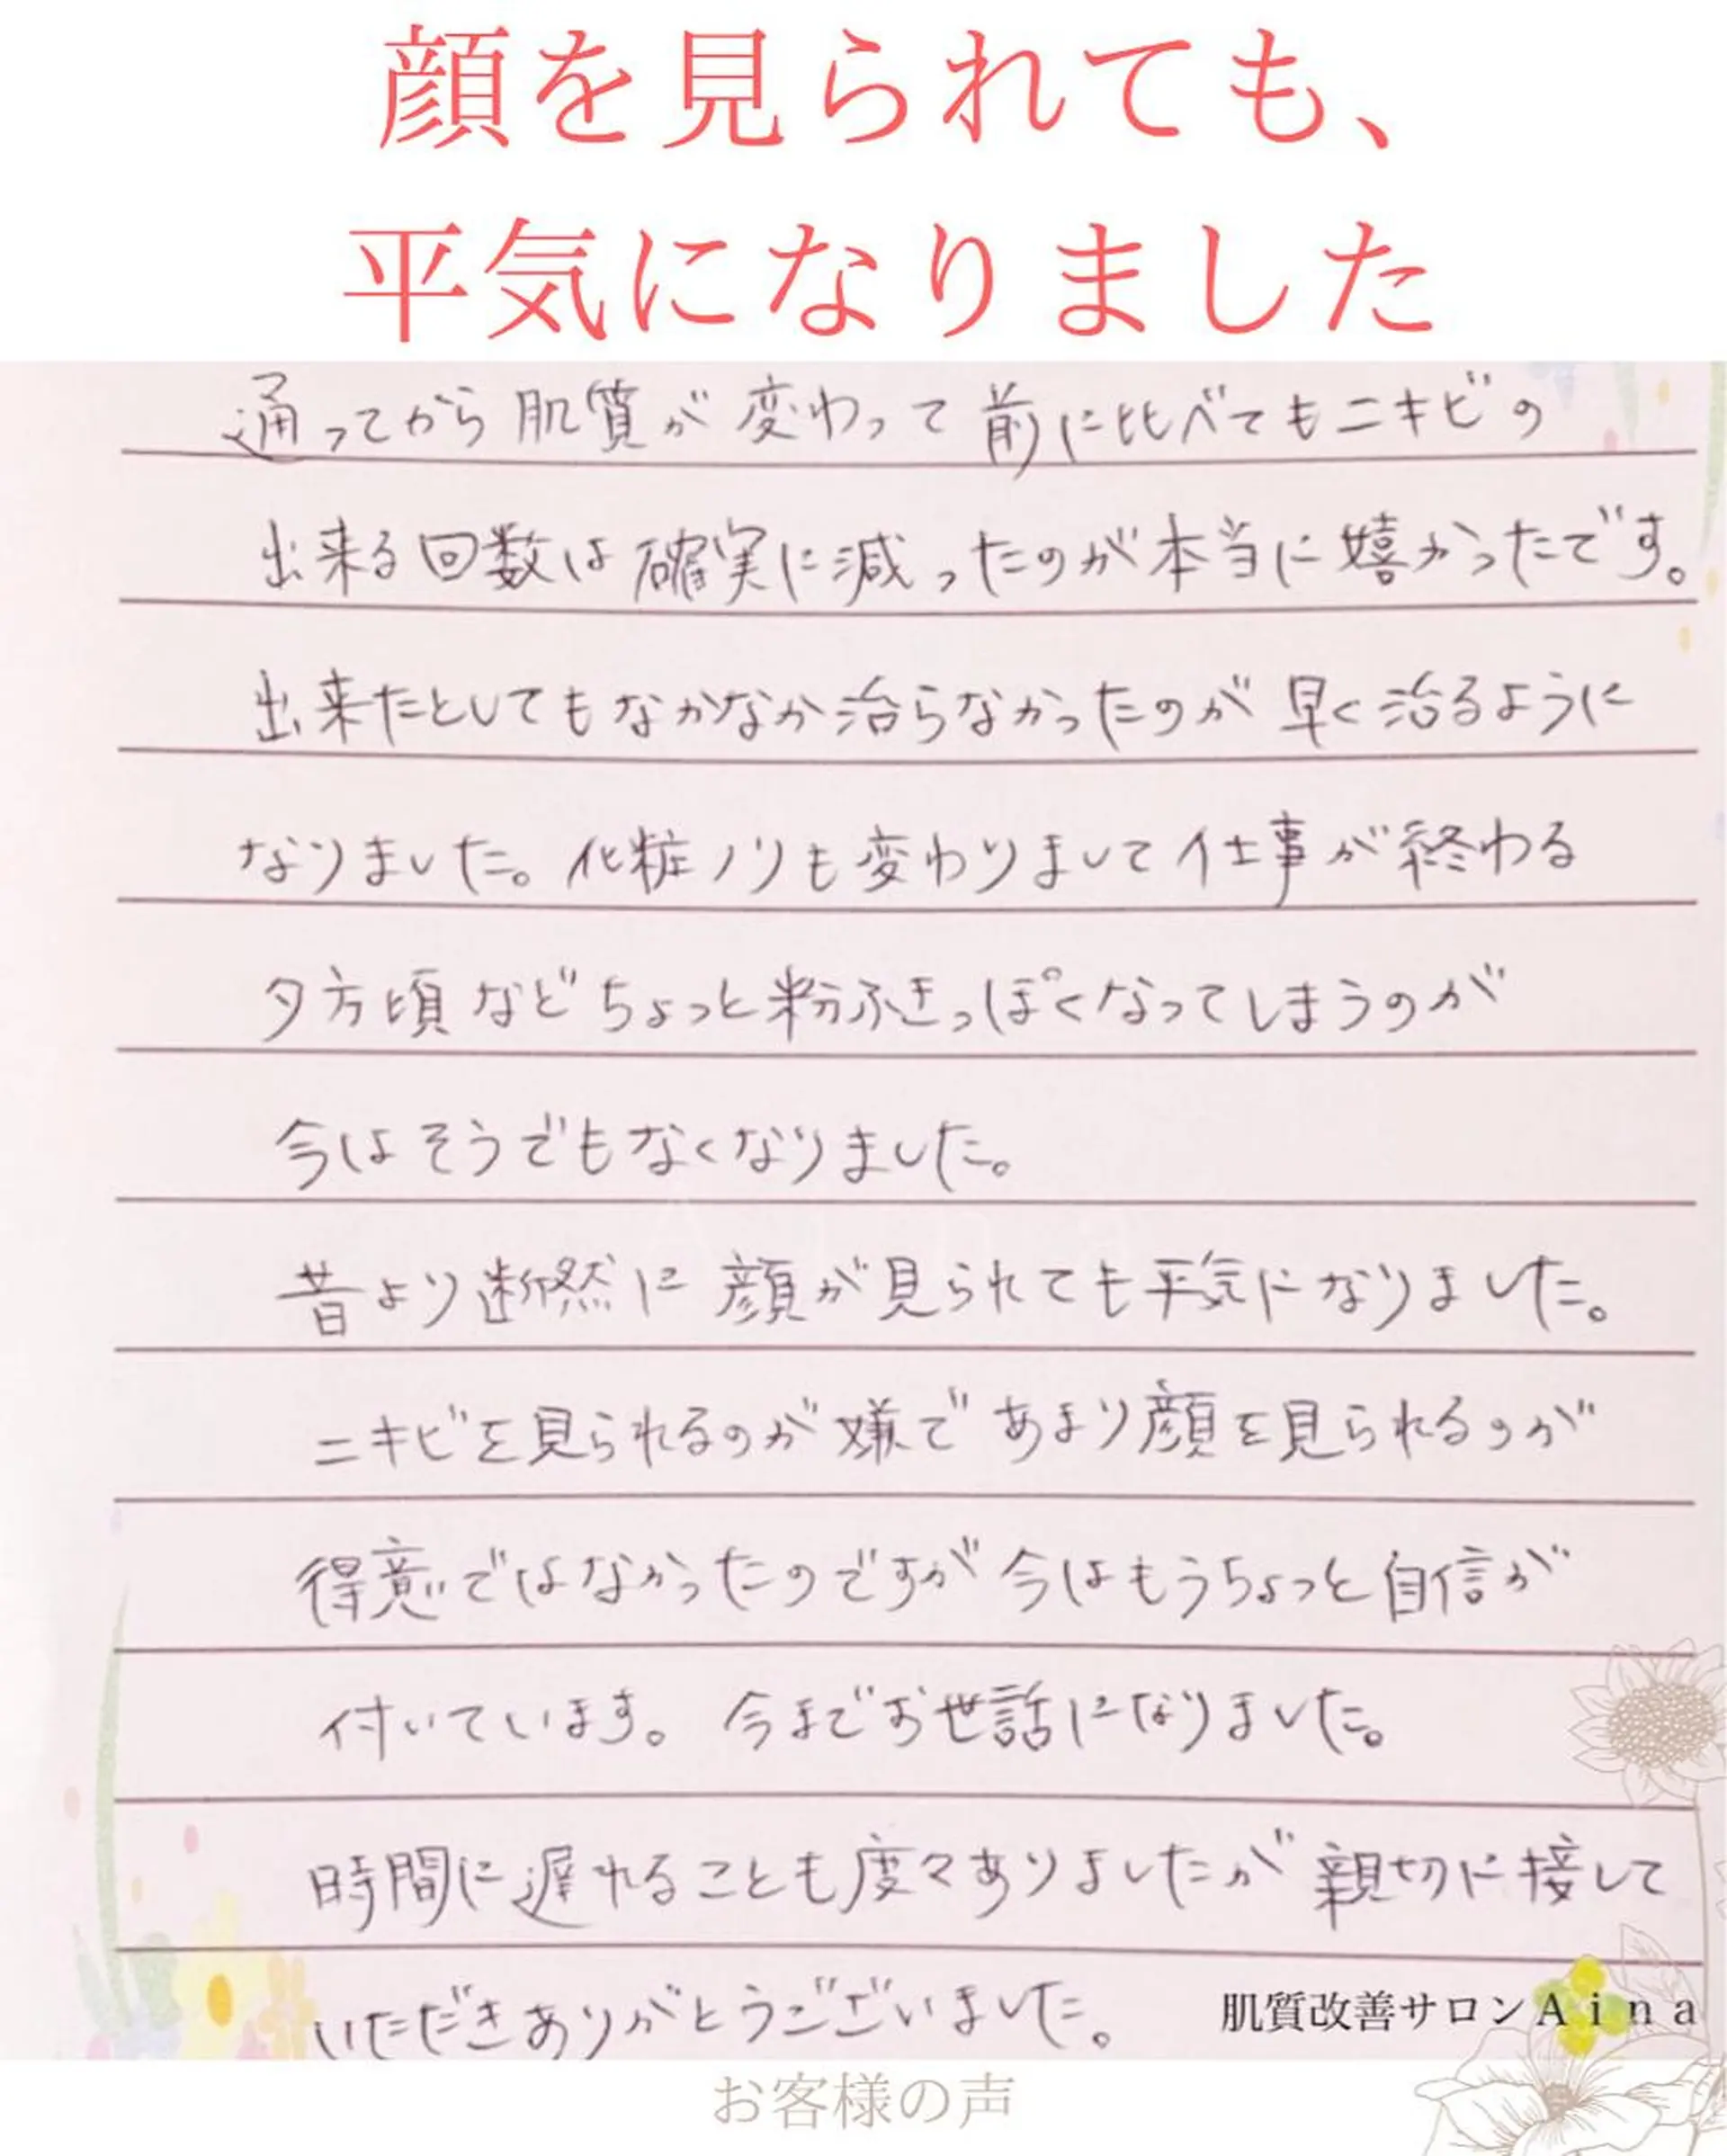 顔を見られても、
平気になりました
通ってから肌質が変わって前に比べてもニキビの
出来る回数は確実に減ったのが本当に嬉かったです。
出来たとしてもなかなか治らなかったのが早く治るように
なりました。化粧ノリも変わりまして仕事が終わる
夕方頃などちょっと粉ふきっぽくなってしまうのが
今はそうでもなくなりました。
昔より断然に顔が見られても平気になりました。
ニキビを見られるのが嫌であまり顔を見られるのが
得意ではなかったのですが今はもうちょっと自信が
付いています。今までお世話になりました。
時間に遅れることも度々ありましたが親切に接して
いただきありがとうございました。
肌質改善サロンAina
お客様の声